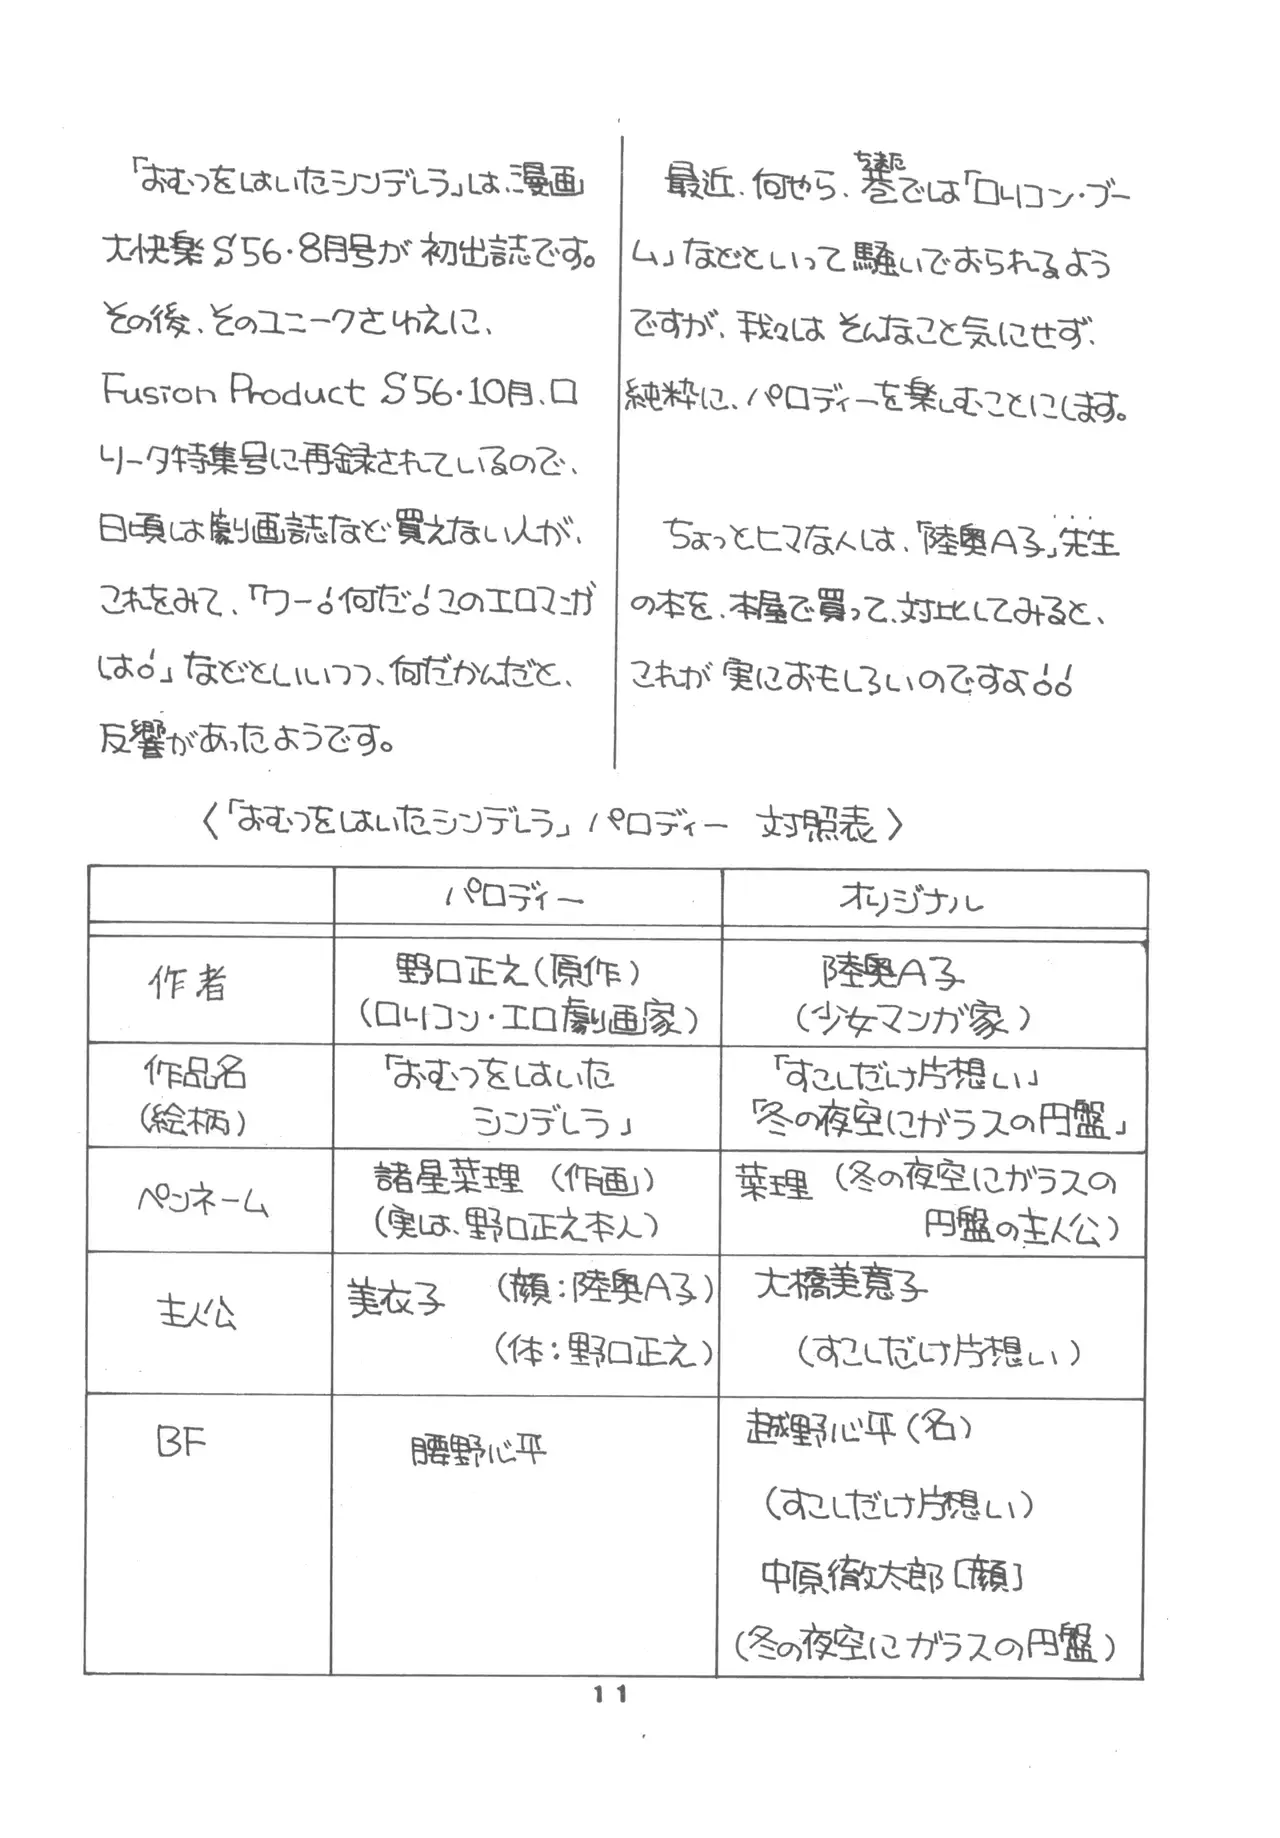 「おむつをはいたシンデレラ」は、漫画
大快楽S56・8月号が初出誌です。
その後、そのユニークさゆえに、
Fusion Product S56・10月、ロ
リータ特集号に再録されているので、
日頃は劇画誌など買えない人が、
これをみて、「ワー!何だ!このエロマンガ
は!」などといいつつ、何だかんだと、
反響があったようです。
最近、何やら、巷では「ロリコン・ブー
ちまた
ム」などといって騒いでおられるよう
ですが、我々はそんなこと気にせず、
純粋に、パロディーを楽しむことにします。
ちょっとヒマな人は、「陸奥A子」先生
の本を、本屋で買って、対比してみると、
これが実におもしろいのですよ!!
〈「おむつをはいたシンデレラ」パロディー 対照表〉
パロディー オリジナル
作者 野口正之(原作) 陸奥A子
(ロリコン・エロ劇画家) (少女マンガ家)
作品名 「おむつをはいた 「すこしだけ片想い」
(絵柄) シンデレラ」 「冬の夜空にガラスの円盤」
ペンネーム 諸星菜理 (作画) 葉理 (冬の夜空にガラスの
(実は、野口正之本人) 円盤の主人公)
主人公 美衣子 (顔:陸奥A子) 大橋美意子
(体:野口正之) (すこしだけ片想い)
BF 腰野心平 越野心平(名)
(すこしだけ片想い)
中原徹太郎[顔]
(冬の夜空にガラスの円盤)
11